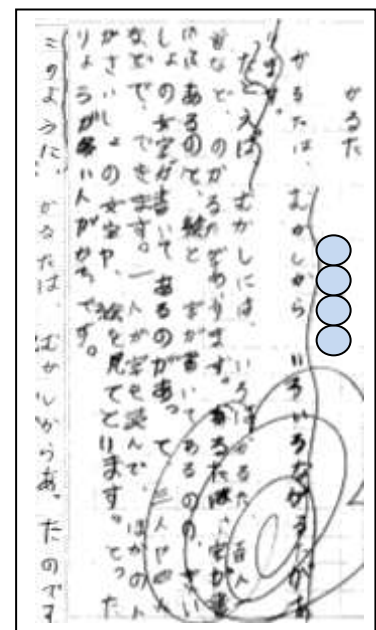 かるた
かるたは、むかしから いろいろなかるたがあ
ります。
たとえば むかしには、いろはかるた、百人
首など、のかるたがあります。かるたは、字が書
いてあるのと、絵と字が書いてあるのの、さい
しょの文字が書いてあるのがあって、三人や四人
などで、できます。一人が字を読んで、ほかの人
がさいしょの文字や、絵を見てとります。とった
りょうが多い人がかちです。
このように、かるたは、むかしからあったのです